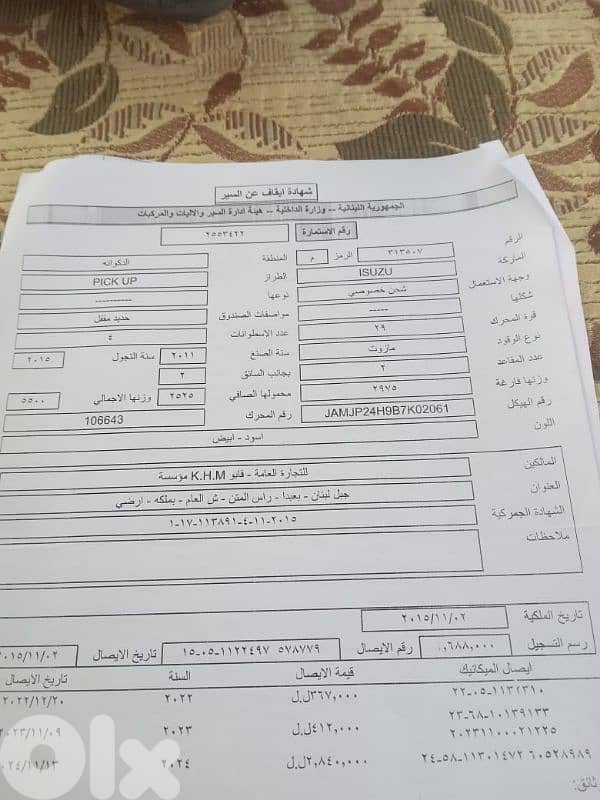 شهادة ايقاف عن السير
الجمهورية اللبنانية -- وزارة الداخلية -- هيئة ادارة السير والاليات والمركبات
رقم الاستمارة ٢٥٥٣٤٢٢
الرقم ٣١٣٥٠٧ الرمز م المنطقة الدكوانه
الماركة ISUZU الطراز PICK UP
وجهة الاستعمال شحن خصوصي نوعها ----------
شكلها ----- مواصفات الصندوق حديد مقفل
قوة المحرك ٢٩ عدد الاسطوانات ٤
نوع الوقود مازوت سنة الصنع ٢٠١١ سنة التجول ٢٠١٥
عدد المقاعد ٢ بجانب السائق ٢
وزنها فارغة ٢٩٧٥ محمولها الصافي ٢٥٢٥ وزنها الاجمالي ٥٥٠٠
رقم الهيكل JAMJP24H9B7K02061 رقم المحرك 106643
اللون اسود - ابيض
المالكين للتجارة العامة - فابو K.H.M مؤسسة
العنوان جبل لبنان - بعبدا - راس المتن - ش العام - بملكه - ارضي
الشهادة الجمركية ٢٠١٥-١١-٤-١١٣٨٩١-١٧-١
ملاحظات
تاريخ الملكية ٢٠١٥/١١/٠٢
رسم التسجيل ,٦٨٨,٠٠٠ رقم الايصال ٥٧٨٧٧٩ ١١٢٢٤٩٧-٠٥-١٥ تاريخ الايصال ٢٠١٥/١١/٠٢
ايصال الميكانيك قيمة الايصال السنة تاريخ الايصال
٢٢-٠٥-١١٣٢٣١٠ ٣٦٧,٠٠٠ل.ل ٢٠٢٢ ٢٠٢٢/١٢/٢٠
٢٣-٦٨-١٠١٣٩١٣٣
٢٠٢٣١١٠٠٠٢١٢٢٥ ٤١٢,٠٠٠ل.ل ٢٠٢٣ ٢٠٢٣/١١/٠٩
٢٤-٥٨-١١٣٠١٤٧٢ ٦٠٥٢٨٩٨٩ ٢,٨٤٠,٠٠٠ل.ل ٢٠٢٤ ٢٤/١١/١٣
ثائق:
olx